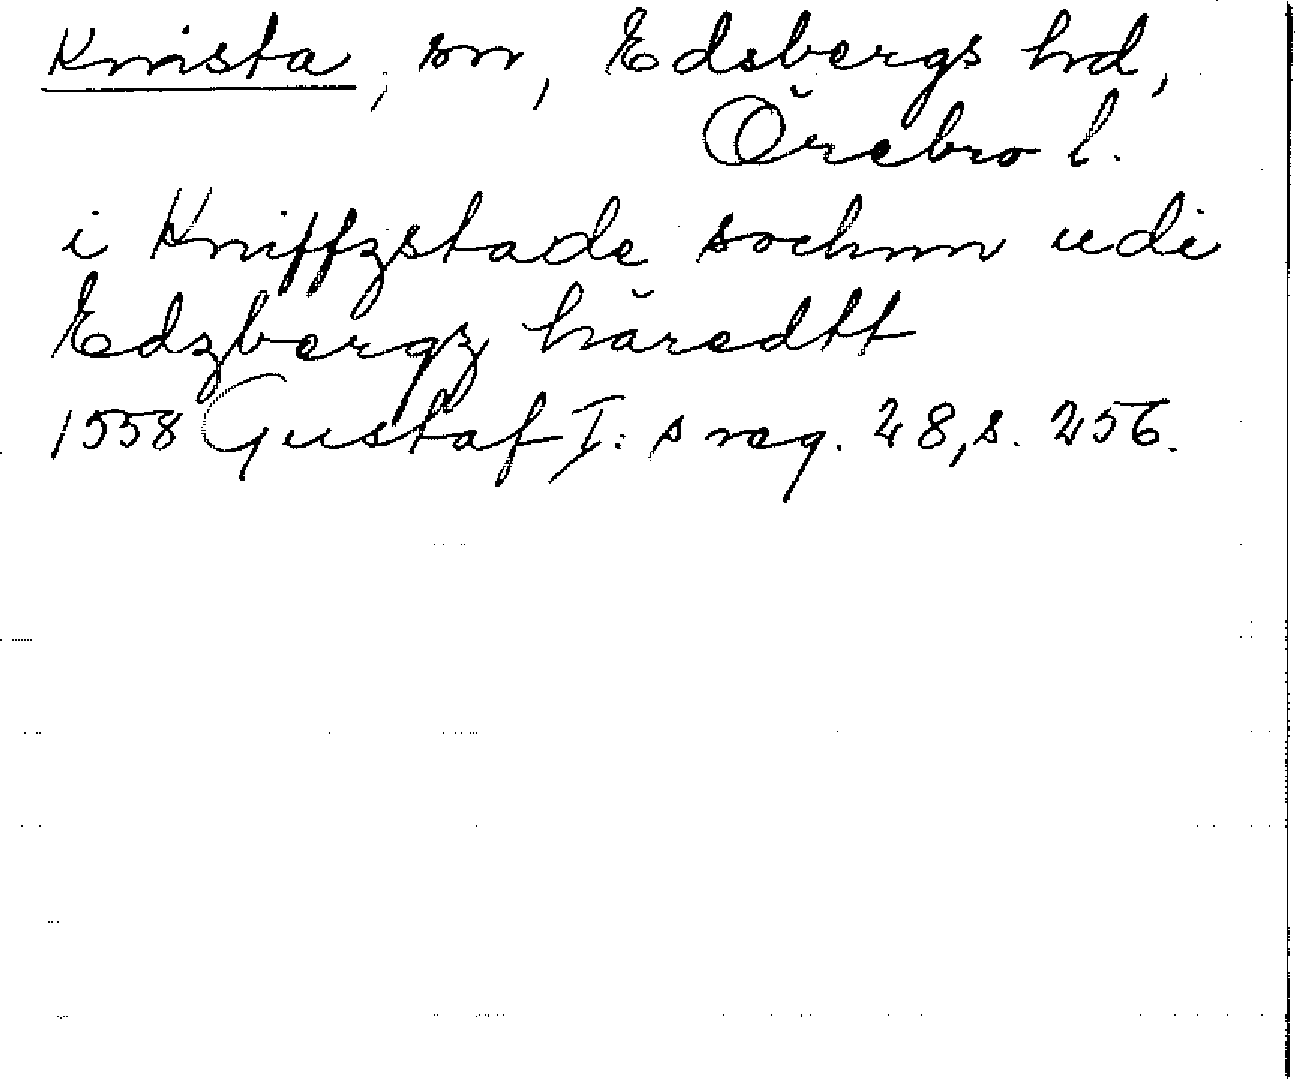 Knista, sn, Edsbergs hd,
Örebro l.
i Kniffzstade sochnn udi
Edzbergz häredtt
1558 Gustaf I:s reg. 28, s. 256.